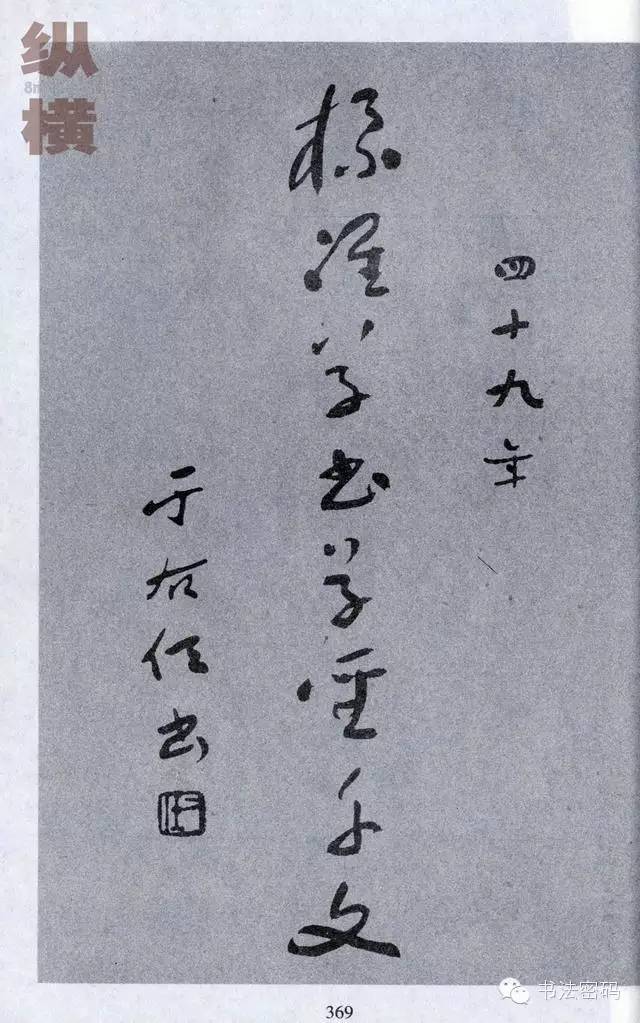 纵横
四十九年
標準草書草聖千文
于右任書
369
书法密码